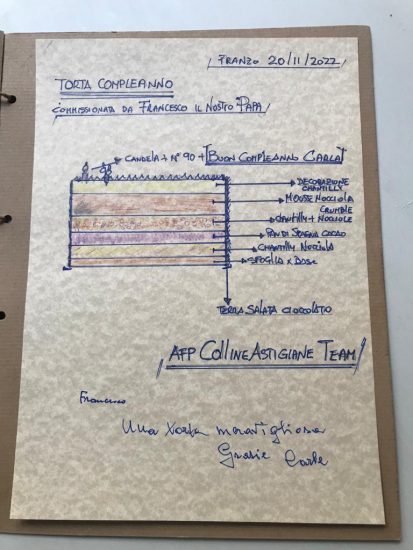 PRANZO 20/11/2022
TORTA COMPLEANNO
COMMISSIONATA DA FRANCESCO IL NOSTRO PAPA
CANDELA + N° 90 + BUON COMPLEANNO CARLA
DECORAZIONE
CHANTILLY
MOUSSE NOCCIOLA
CRUMBLE
CHANTILLY + NOCCIOLE
PAN DI SPAGNA CACAO
CHANTILLY NOCCIOLA
SFOGLIA X BASE
TERRA SALATA CIOCCOLATO
AFP COLLINE ASTIGIANE TEAM
Francesco
Una torta meravigliosa
Grazie Carla